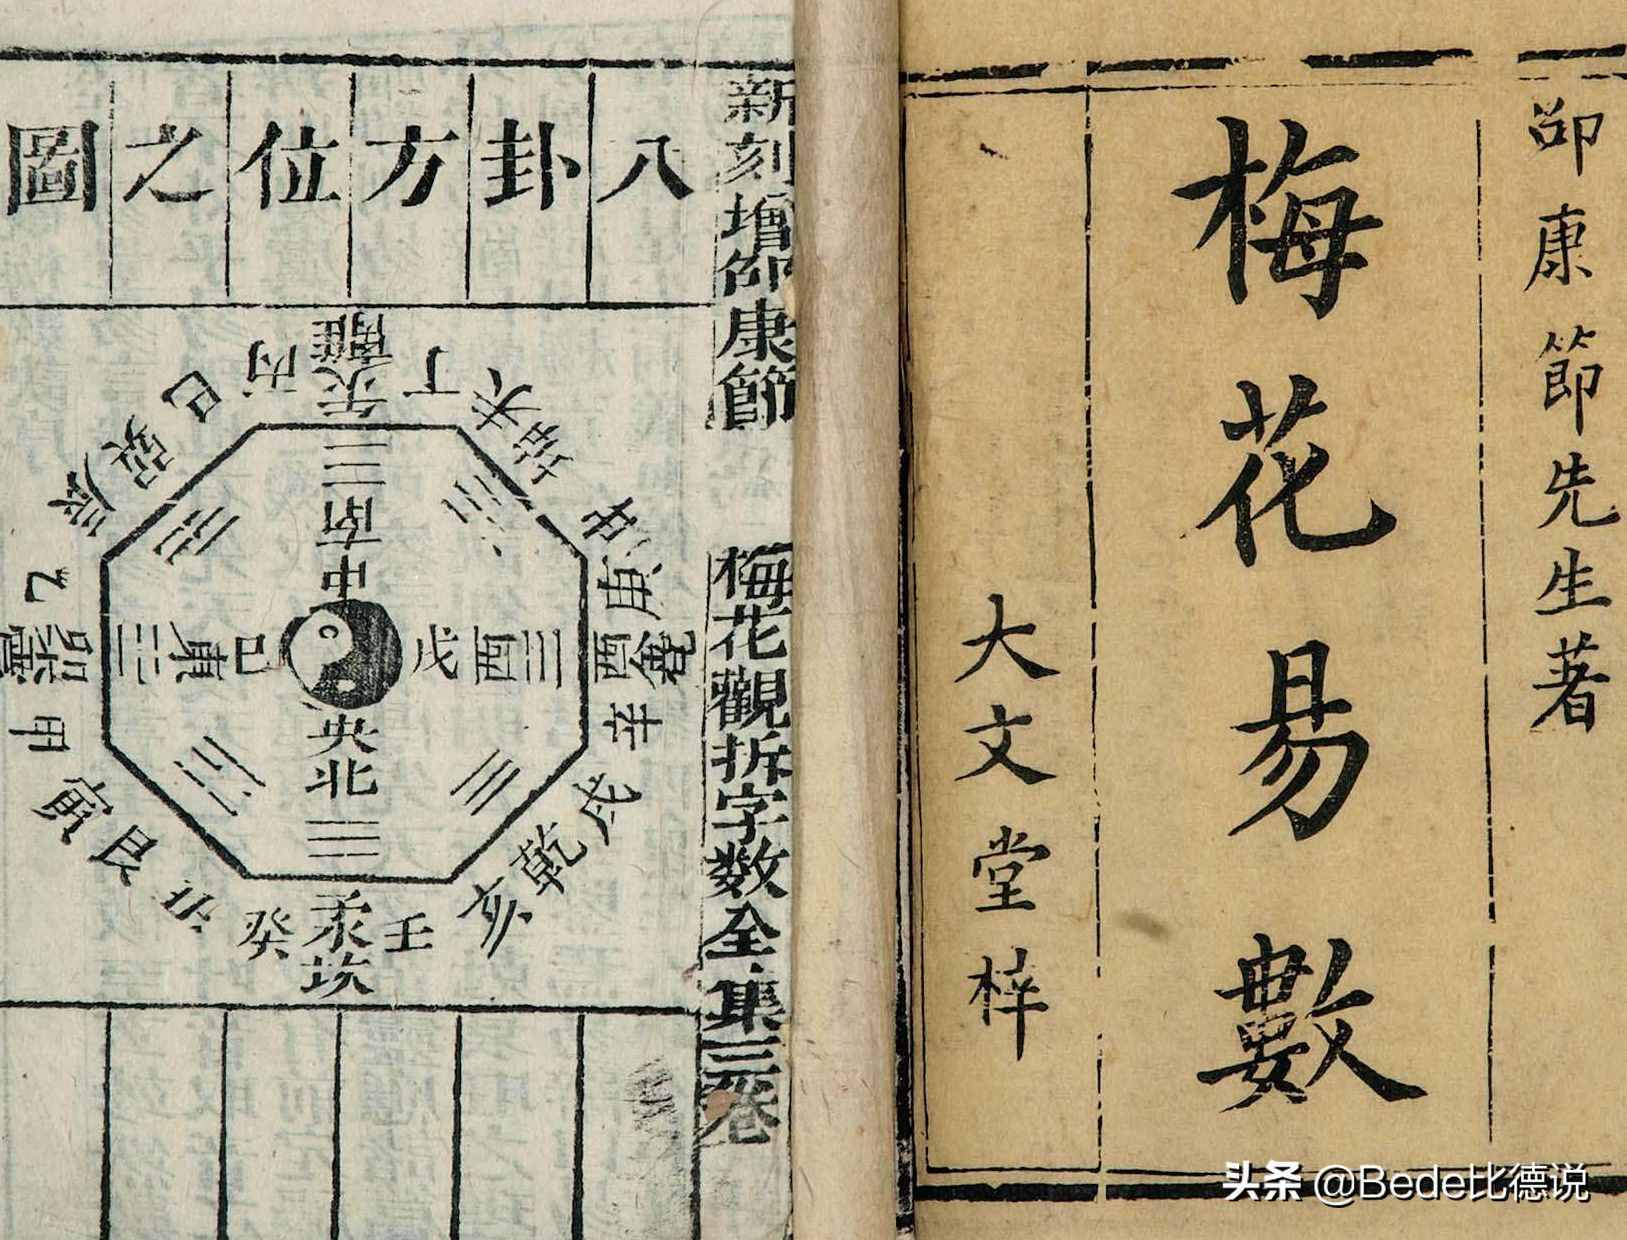 邵康節先生著
梅花易數
大文堂梓
新刻增邵康節 梅花觀折字数全集三卷
八卦方位之圖
離午
丁
未
坤
申
庚
酉兌
辛
戌
乾
亥
壬
子坎
癸
丑
艮
寅
甲
卯震
乙
辰
巽
巳
丙
南中
央北
東己
戊西
头条 @Bede比德说